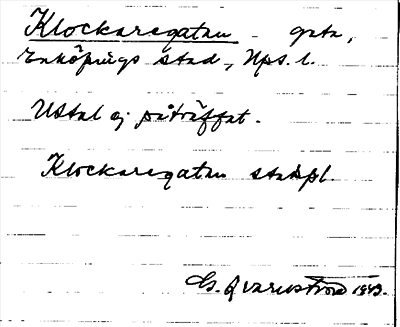 Klockaregatan - gata,
Enköpings stad, Ups. l.
Uttal ej påträffat.
Klockaregatan stadspl.
G. Qvarnström 1943.